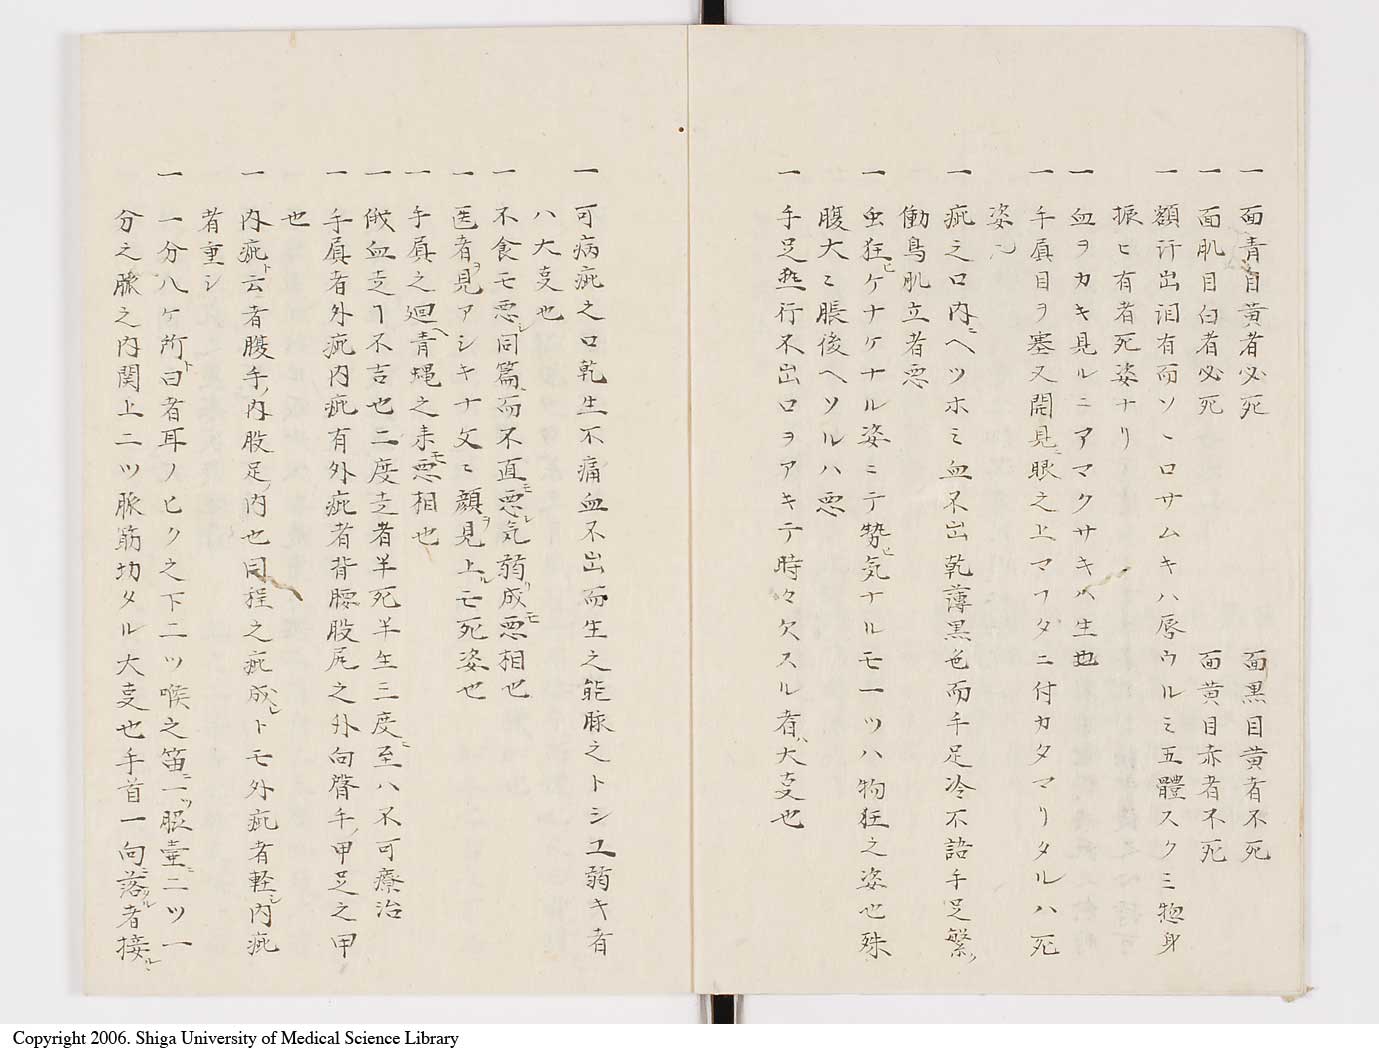 一 面青目黄者必死 面黒目黄者不死
一 面肌目白者必死 面黄目赤者不死
一 額汗出泪有而ソヽロサムキハ唇ウルミ五體スクミ惣身
振ヒ有者死姿ナリ
一 血ヲカキ見ルニアマクサキハ生也
一 手負目ヲ塞又開見ニ眼之上マフタニ付カタマリタルハ死
姿也
一 疵之口内ニヘツホミ血不出乾薄黒色而手足冷不詰手足繋ノ
働鳥肌立者悪
一 虫狂ヒケナケナル姿ミテ勢ヒ気ナルモ一ツハ物狂之姿也殊
腹大ニ脹後ヘソルハ悪
一 手足 行不出口ヲアキテ時々欠スル者ハ大叓也
一 可病疵之口乾生不痛血不出而生之能脉之トシユ弱キ者
ハ大叓也
一 不食モ悪シ同篇ニ而不直モ悪シ気弱リ成モ悪相也
一 医者ヲ見アシキナ文ニ顔ヲ見上ルモ死姿也
一 手負之廻ヘ青蝿之来モ悪相也
一 倣血走ー不吉也二度走者半死半生三度ニ至ハ不可療治
一 手負者外疵内疵有外疵者背腰股尻之外向臂手ノ甲足之甲
也
一 内疵ト云者腹手ノ内股足ノ内也同程之疵成トモ外疵者軽シ内疵
者重シ
一 一分八ケ所ト曰者耳ノヒク之下二ツ喉之笛ニ一ツ腿壷ニ二ツ一
分之脈之内関上二ツ脈筋切タル大叓也手首一向ニ落タル者接ルミ
Copyright 2006. Shiga University of Medical Science Library